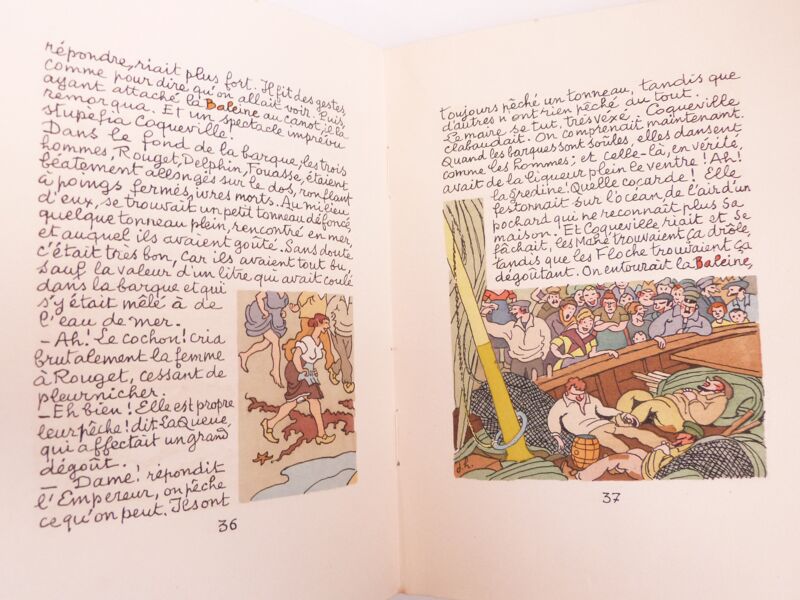 répondre, riait plus fort. Il fit des gestes,
comme pour dire qu'on allait voir. Puis
ayant attaché la Baleine au canot, il la
remorqua. Et un spectacle imprévu
stupéfia Coqueville.
Dans le fond de la barque, les trois
hommes, Rouget, Delphin, Fouasse, étaient
béatement allongés sur le dos, ronflant
à poings fermés, ivres morts. Au milieu
d'eux, se trouvait un petit tonneau défoncé,
quelque tonneau plein, rencontré en mer,
et auquel ils avaient goûté. Sans doute
c'était très bon, car ils avaient tout bu,
sauf la valeur d'un litre qui avait coulé
dans la barque et qui
s'y était mêlé à de
l'eau de mer.
– Ah! Le cochon! cria
brutalement la femme
à Rouget, cessant de
pleurnicher.
– Eh bien! Elle est propre
leur pêche! dit La Queue,
qui affectait un grand
dégoût.
– Dame! répondit
l'Empereur, on pêche
ce qu'on peut. Ils ont
36
toujours pêché un tonneau, tandis que
d'autres n'ont rien pêché du tout.
Le maire se tut, très vexé. Coqueville
clabaudait. On comprenait maintenant.
Quand les barques sont soûles, elles dansent
comme les hommes; et celle-là, en vérité,
avait de la liqueur plein le ventre! Ah!
la gredine! Quelle cocarde! Elle
festonnait sur l'océan de l'air d'un
pochard qui ne reconnaît plus sa
maison! Et Coqueville riait et se
fâchait, les Mahé trouvaient ça drôle,
tandis que les Floche trouvaient ça
dégoûtant. On entourait la Baleine,
37